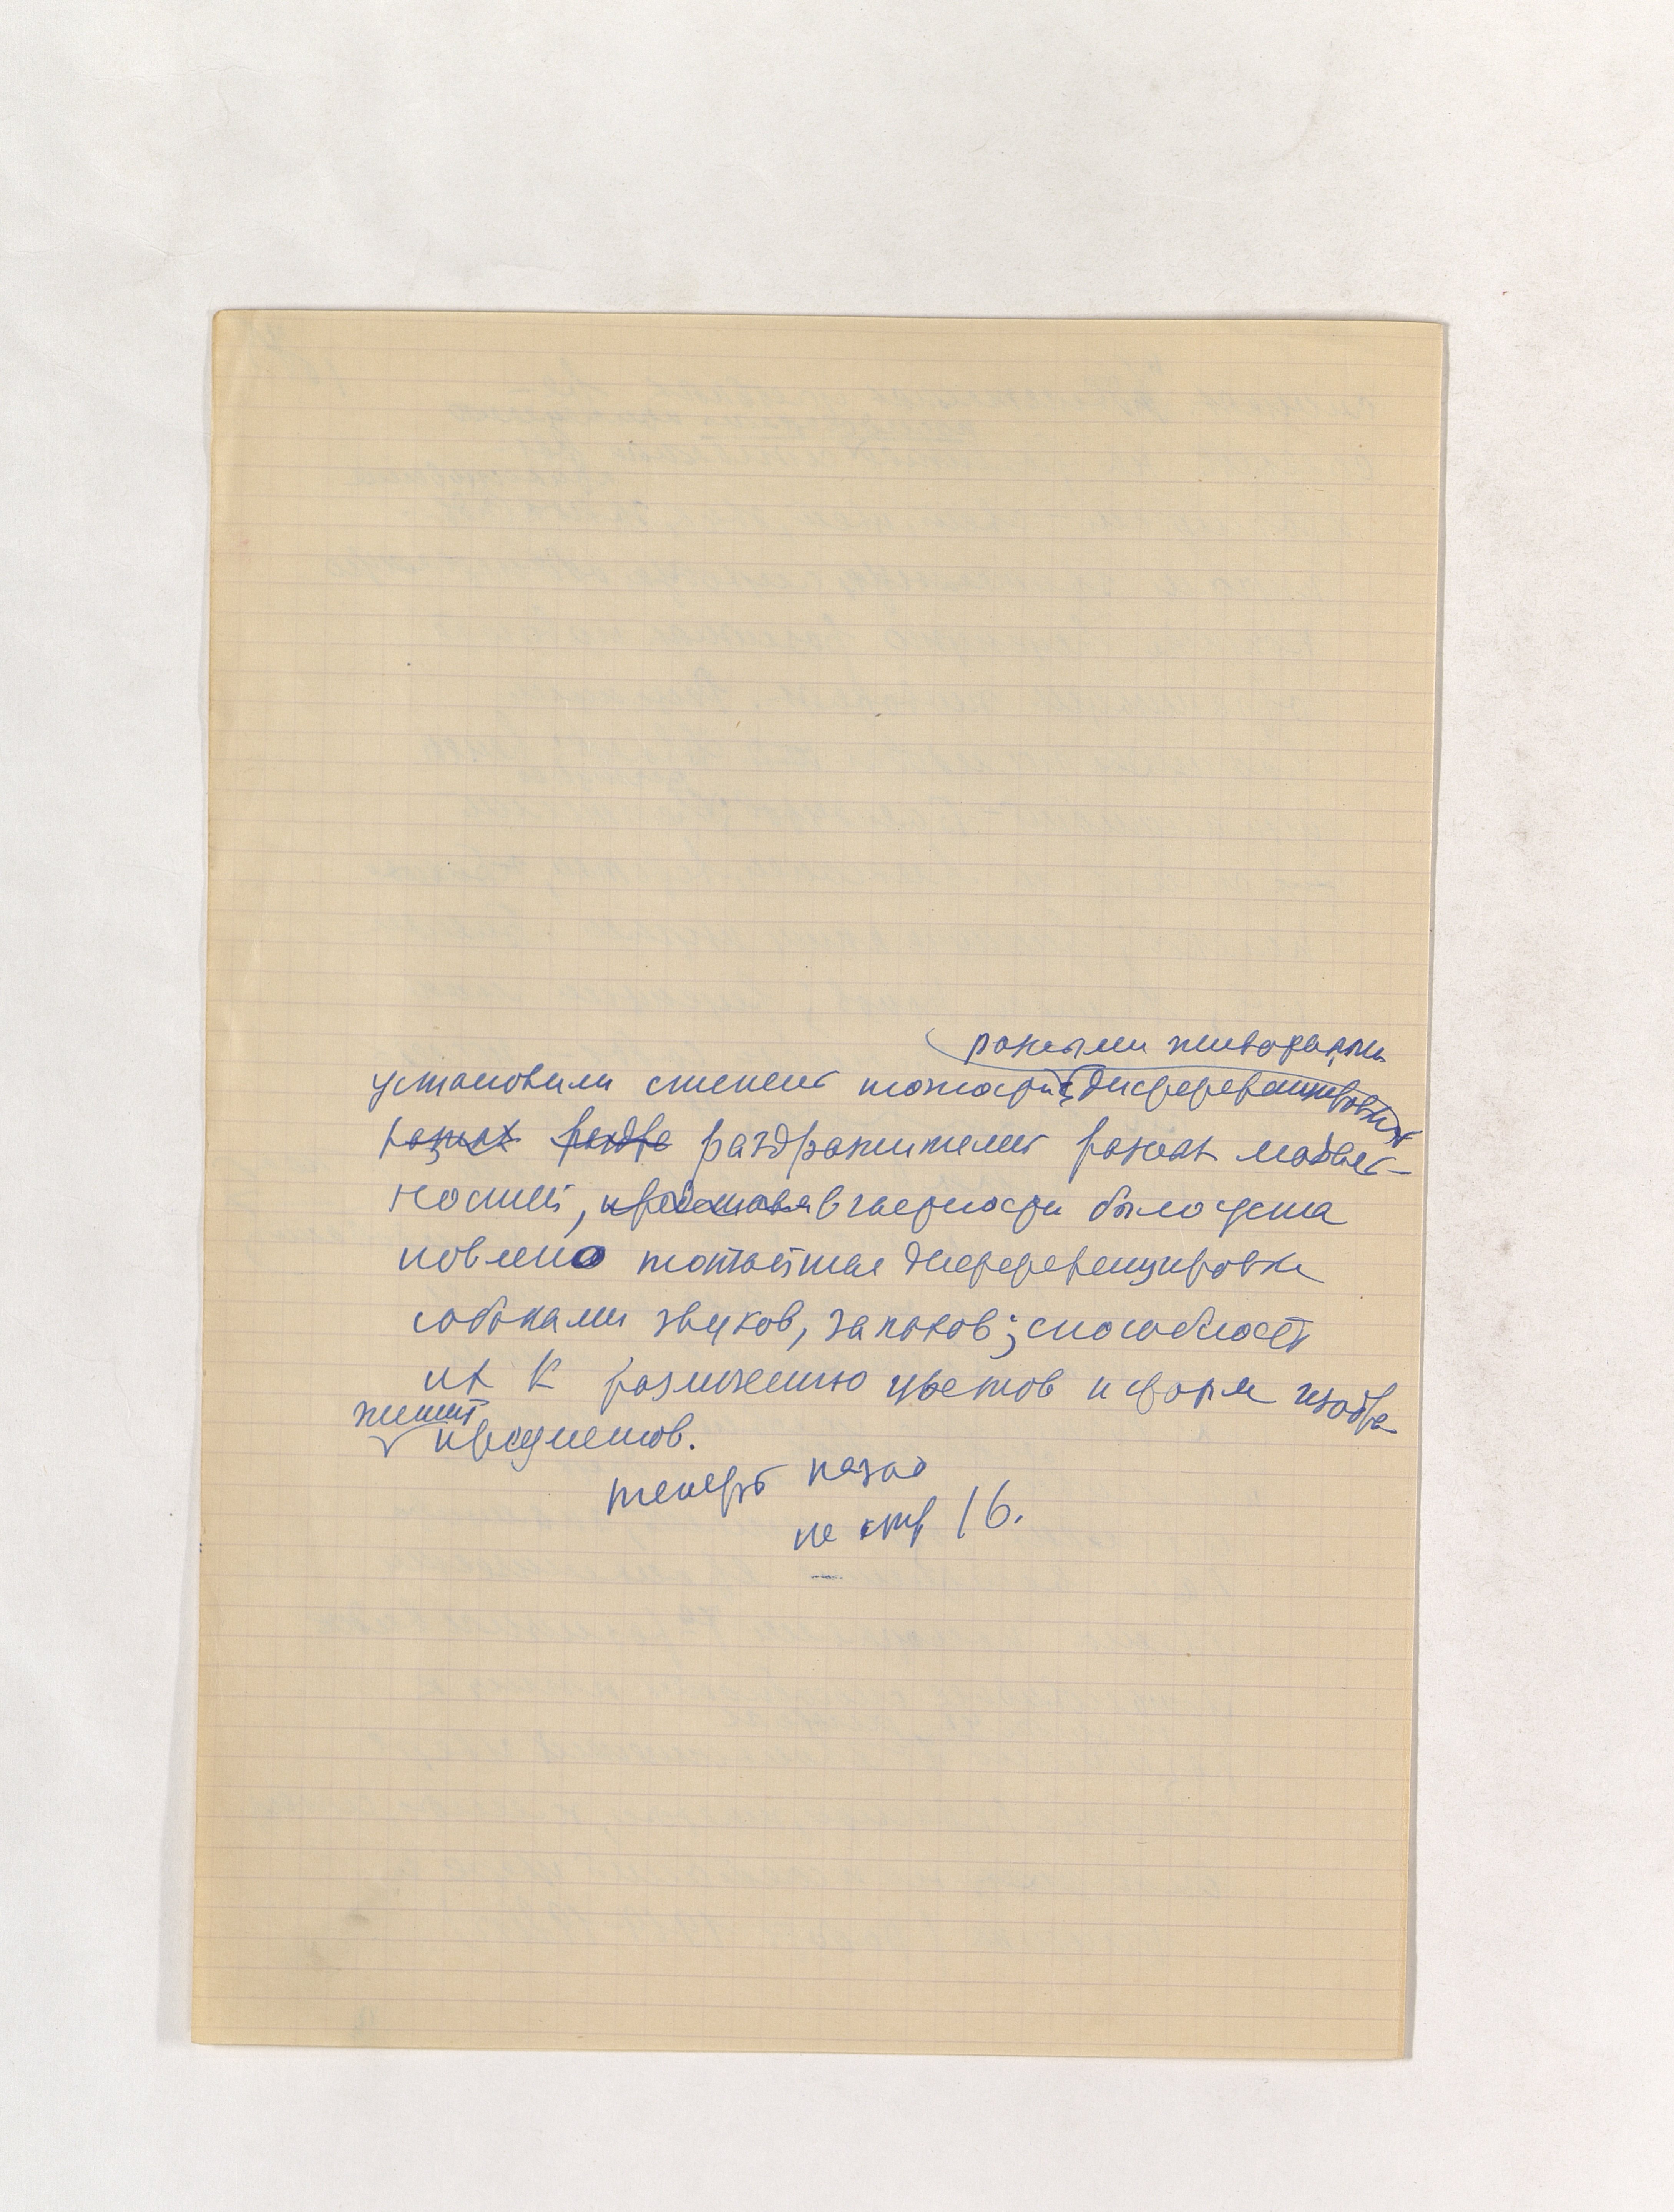 разными животными
установили степень тонкости дифференцировки
разных раздр раздражителей разных модаль-
ностей, представл в частности было уста
новлено тончайшая дифференцировка
собаками звуков, запахов; способность
их к различению цветов и форм изобра
жений
предметов.
теперь назад
на стр 16.